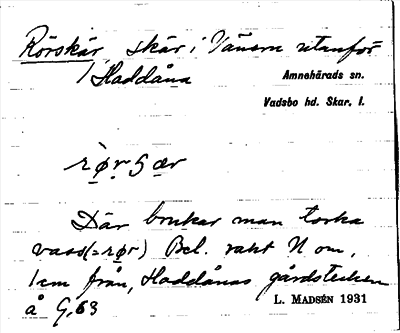 Rörskär, skär i Vänern utanför
Haddåna
Amnehärads sn.
Vadsbo hd. Skar. l.
rø̀rsær
Där brukar man torka
vass (=rør) Bel. rakt N om,
1 cm från, Haddånas gårdstecken
å G, 63
L. MADSÉN 1931